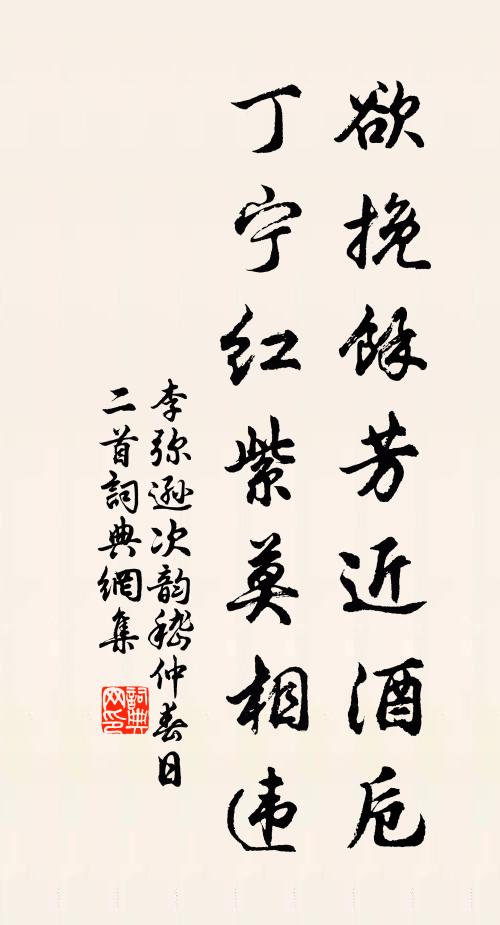 欲挽餘芳近酒卮
丁宁红紫莫相违
李弥逊次韵嵇仲春日
二首詞典網集
詞典
网印